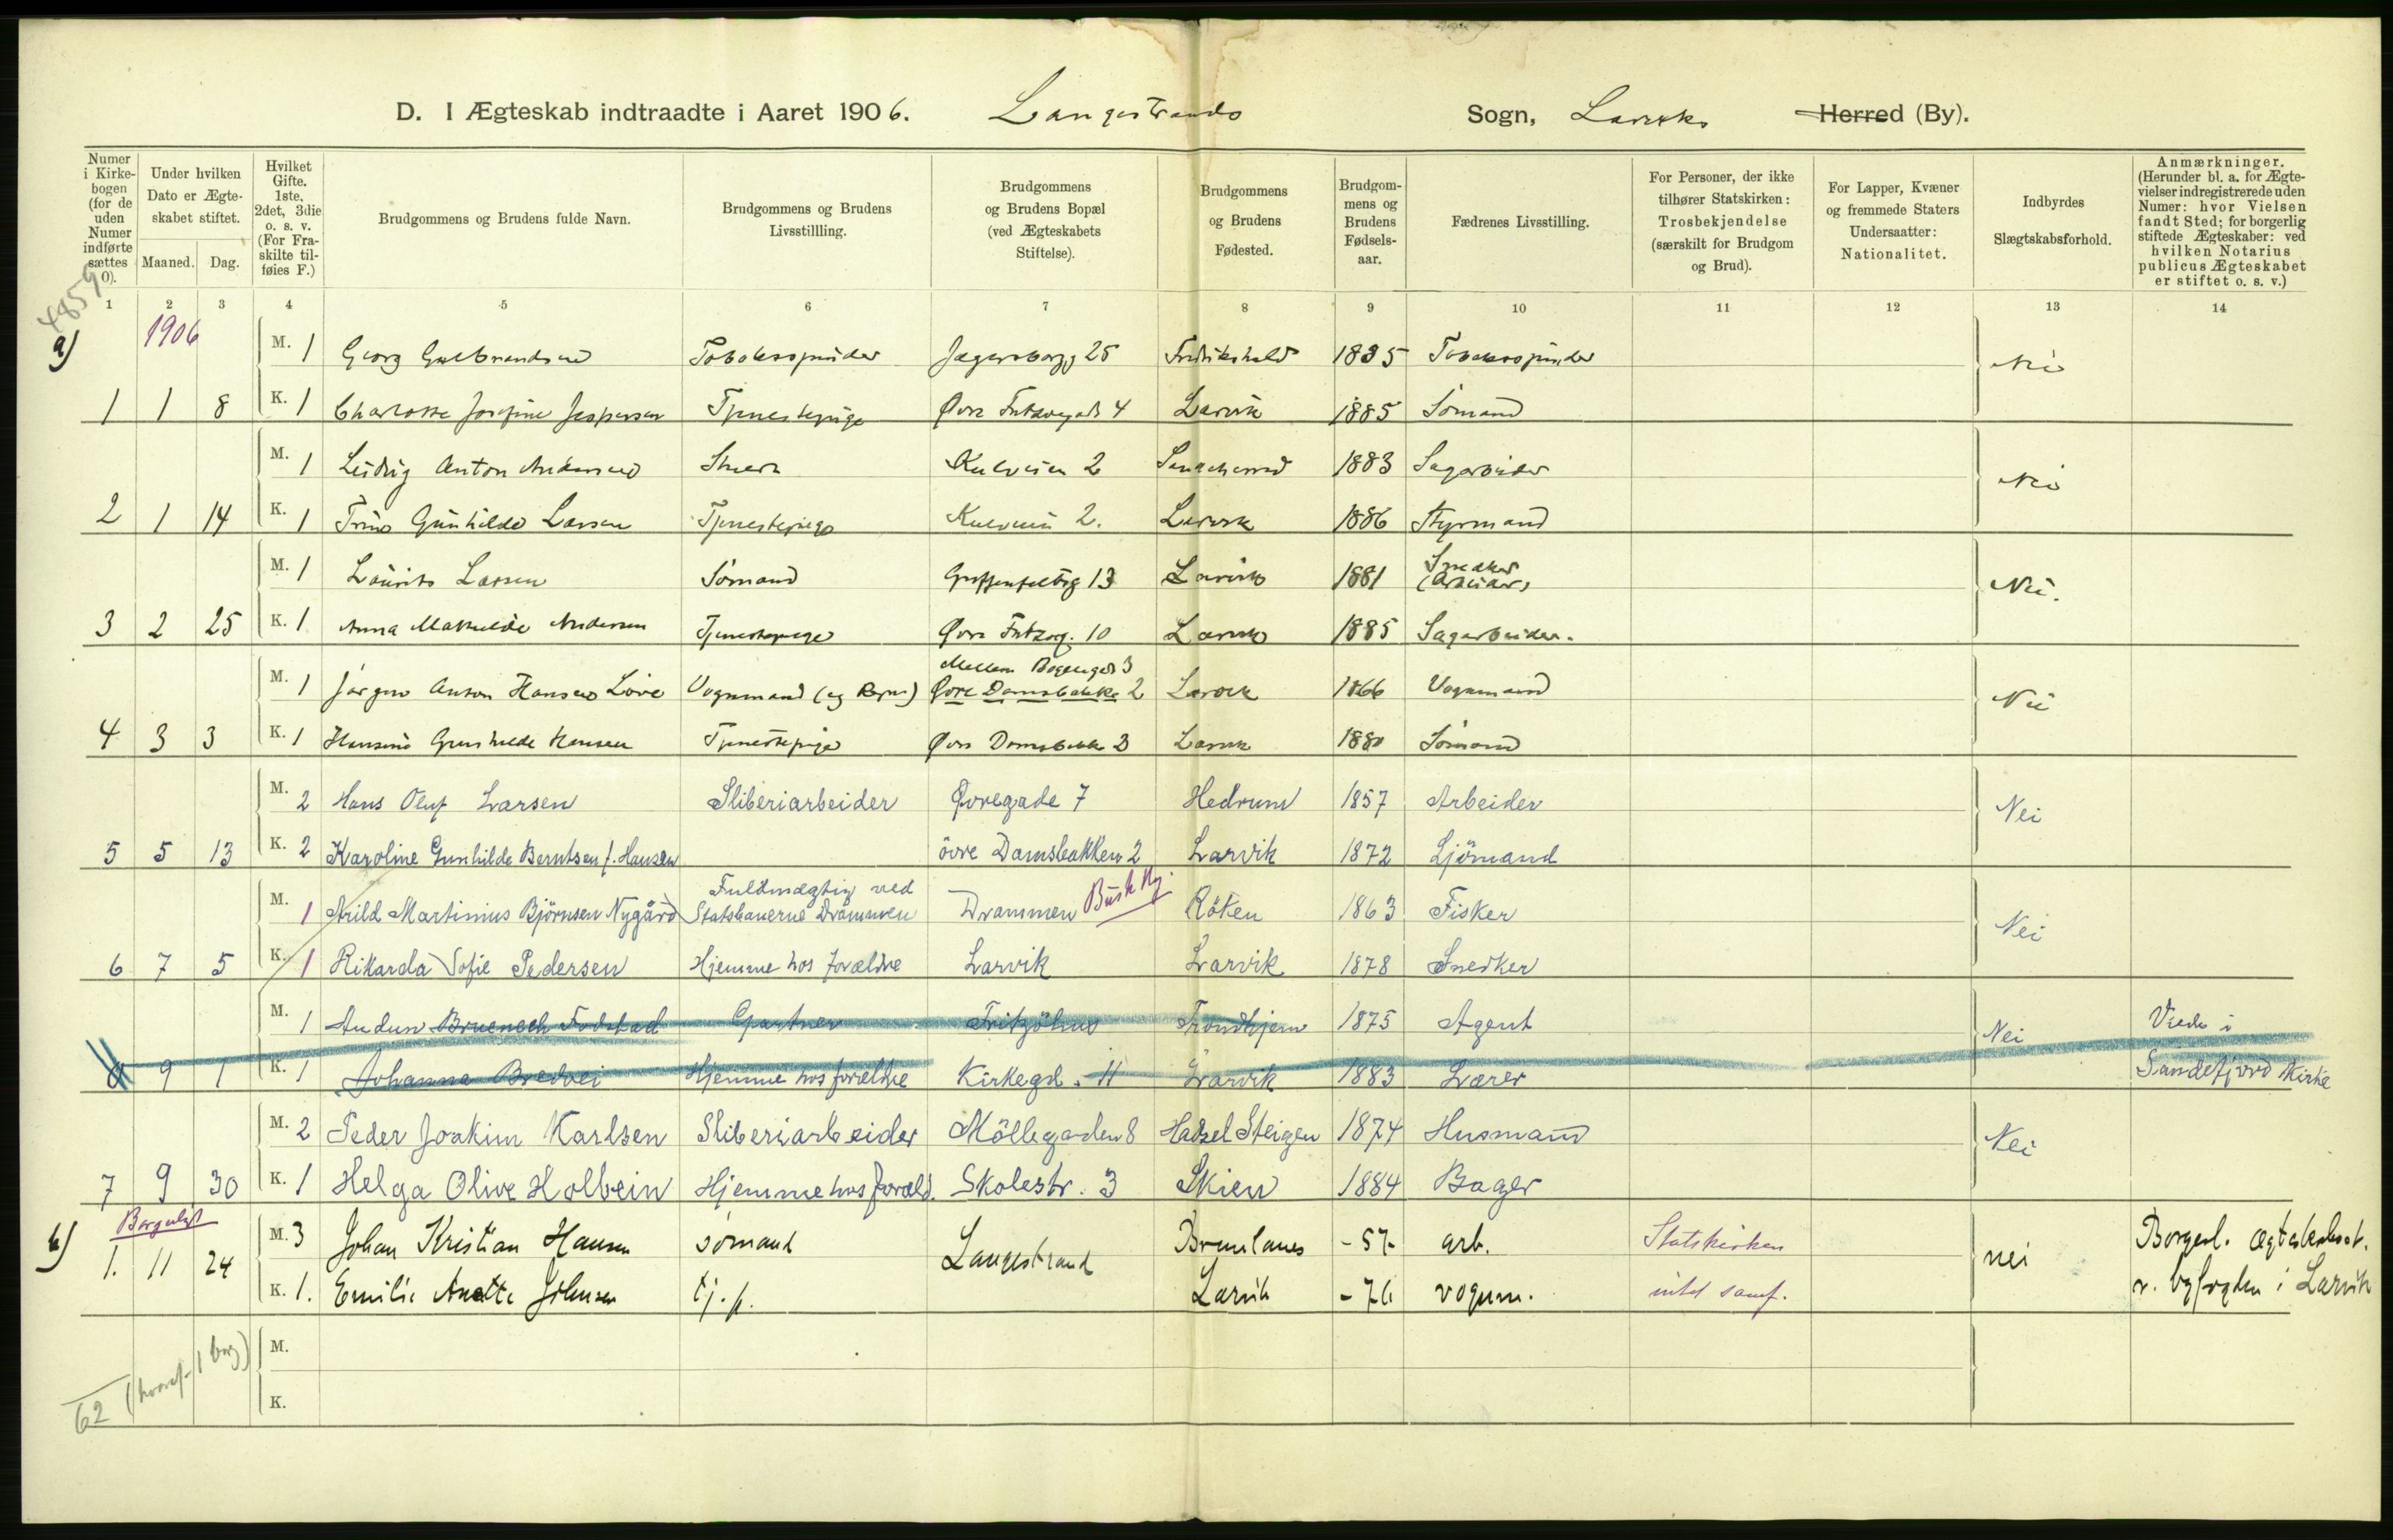 D. I Ægteskab indtraadte i Aaret 1906. Langestrands Sogn, Larviks Herred (By).
Numer i Kirkebogen (for de uden Numer indførte sættes 0).
Under hvilken Dato er Ægteskabet stiftet.
Maaned. Dag.
Hvilket Gifte. 1ste, 2det, 3die o. s. v. (For Fraskilte tilføies F.)
Brudgommens og Brudens fulde Navn.
Brudgommens og Brudens Livsstillling.
Brudgommens og Brudens Bopæl (ved Ægteskabets Stiftelse).
Brudgommens og Brudens Fødested.
Brudgommens og Brudens Fødselsaar.
Fædrenes Livsstilling.
For Personer, der ikke tilhører Statskirken: Trosbekjendelse (særskilt for Brudgom og Brud).
For Lapper, Kvæner og fremmede Staters Undersaatter: Nationalitet.
Indbyrdes Slægtskabsforhold.
Anmærkninger. (Herunder bl. a. for Ægtevielser indregistrerede uden Numer: hvor Vielsen fandt Sted; for borgerlig stiftede Ægteskaber: ved hvilken Notarius publicus Ægteskabet er stiftet o. s. v.)
4859
1 2 3 4 5 6 7 8 9 10 11 12 13 14
a) 1906
M. 1 Georg Gulbrandsen Tobaksspinder Jegersborgg 25 Fredrikshald 1885 Tobaksspinder Nei
1 1 8 K. 1 Charlotte Josefine Jespersen Tjenestepige Øvre Fritzøegade 4 Larvik 1885 Sömand
M. 1 Ludvig Anton Andersen 2 1883 Sagarbeider Nei
2 1 14 K. 1 Gunhilde Larsen Tjenestepige 2. Larvik 1886 Styrmand
M. 1 Laurits Larsen Sömand Griffenfeldtsg 13 Larvik 1881 Snedker (Arbeider) Nei.
3 2 25 K. 1 Anna Mathilde Andersen Tjenestepige Øvre Fritzøeg. 10 Larvik 1885 Sagarbeider.
Mellem Bøgegade 3
M. 1 Jörgen Anton Hansen Löve Vognmand Øvre Damsbakke 2 Larvik 1866 Vognmand Nei
4 3 3 K. 1 Hansine Gunhilde Hansen Tjenestepige Øvre Damsbakke 2 Larvik 1880 Sömand
M. 2 Hans Oluf Larsen Sliberiarbeider Øvregade 7 Hedrum 1857 Arbeider Nei
5 5 13 K. 2 Karoline Gunhilde Berntsen f. Hansen övre Damsbakken 2 Larvik 1872 Sjömand
Fuldmægtig ved
M. 1 Arild Martinius Björnsen Nygård Statsbanerne Drammen Drammen Busk Röken 1863 Fisker Nei
6 7 5 K. 1 Rikarda Sofie Pedersen Hjemme hos forældre Larvik Larvik 1878 Snedker
M. 1 Audun Bruenech Fodstad Gartner Fritzöhus Trondhjem 1875 Agent Nei Viede i
0 9 1 K. 1 Johanna Bredvei Hjemme hos forældre Kirkegd. 11 Larvik 1883 Lærer Sandefjord Kirke
M. 2 Peder Joakim Karlsen Sliberiarbeider Möllegaden 8 Hadsel Steigen 1874 Husmand Nei
7 9 30 K. 1 Helga Olive Holbein Hjemme hos foræld. Skolestr. 3 Skien 1884 Bager
b) Borgerligt
M. 3 Johan Kristian Hansen sömand Langestrand Brunlanes -57- arb. Statskirken nei Borgerl.
1. 11 24 K. 1. Emilie Anette Johnsen tj. p. Larvik -76 vognm. intet samf. v. byfogden i Larvik
M.
K.
62 (hvoraf 1 borg)